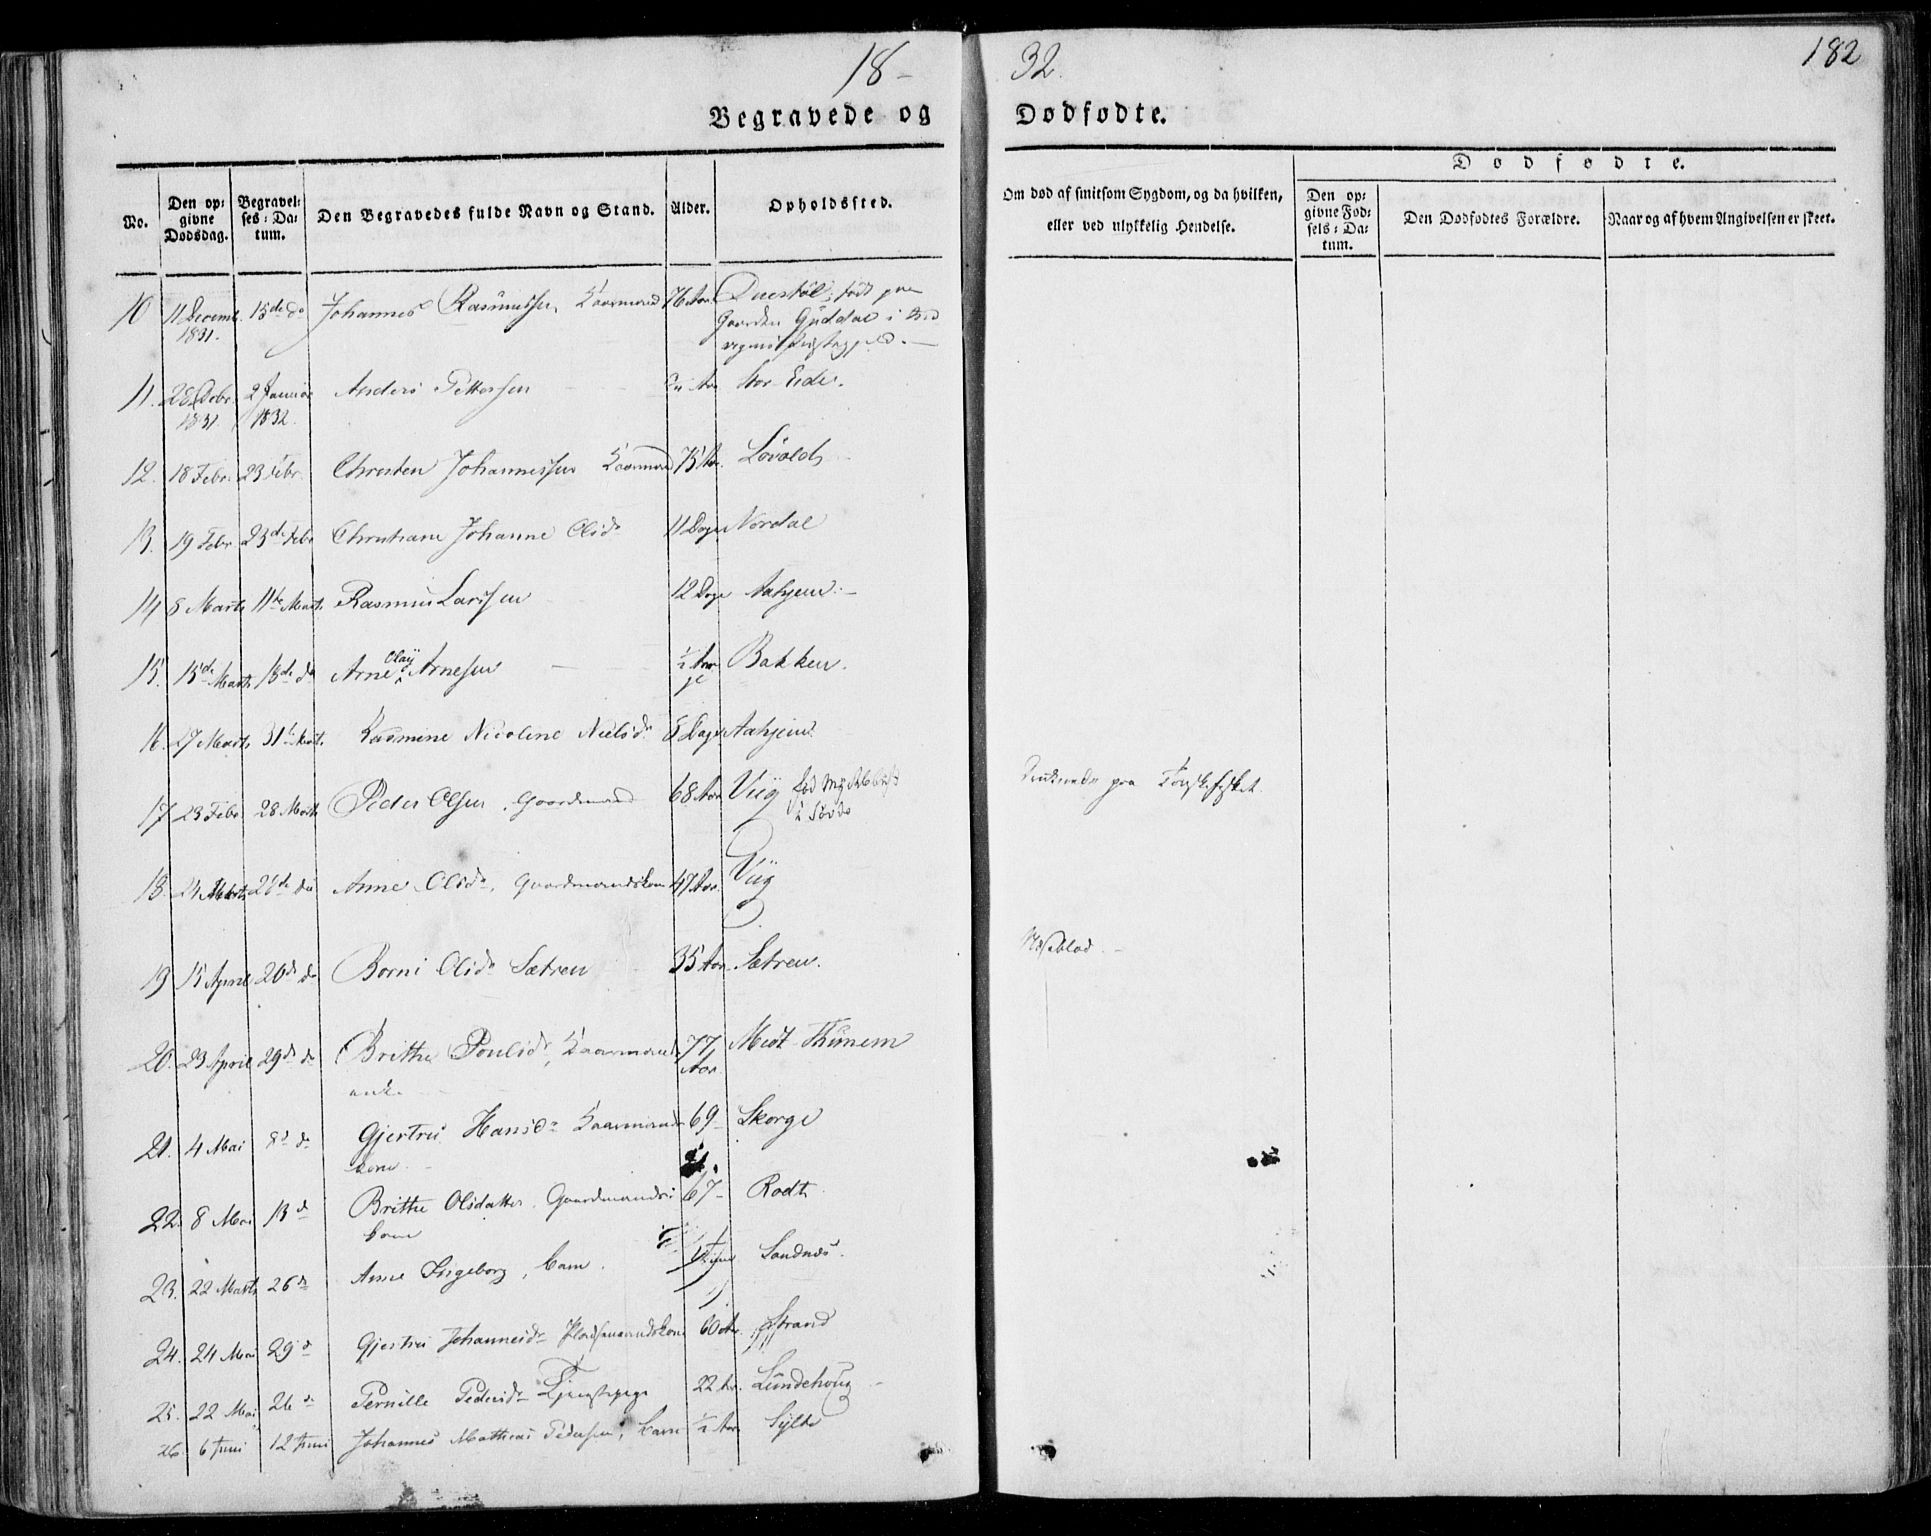 18- 32. 182
Begravede og Dodfodte.
Dodfodte.
No. Den opgivne Dodsdag. Begravelses-Datum. Den Begravedes fulde Navn og Stand. Alder. Opholdssted. Om død af smitsom Sygdom, og da hvilken, eller ved ulykkelig Hendelse. Den opgivne Fodsels-Datum. Den Dodfodtes Forældre. Naar og af hvem Angivelsen er skeet.
10 11 Decemb. 1831. 15de do Johannes Rasmussen, Kaarmand 76 Aar. født paa
Gaarden Guddal i
11. 28 Debr. 1831. 2 Januar 1832. Anders Pettersen Aar Eide.
12. 18 Febr. 23 Febr. Christen Johannessen Kaarmand 75 Aar. Løvold
13. 19 Febr 23de Febr Christiane Johanne Olsdr 11 Dage Nordal
14 8 Marts 11te Mart. Rasmus Larssen 12 Dage Aahjem.
15. 15de Marts 18de do Arne Olay Arnesen 1/2 Aar Bakken.
16. 27 Marts 31te Mart. Rasmine Nicoline Nielsdr 8 Dage Aahjem.
17 23 Febr. 28 Marts Peder Olsen, Gaardmand 68 Aar Viig fød Myklebust Druknede paa Torskefisket.
18. 24 Marts 26de do Anne Olsdr, Gaardmandskone 47 Aar. Viig
19 15 April 20de do Borni Olsdr Sætren 35 Aar Sætren. Næseblod.
20. 23 April 29de do Brithe Poulsdr, Kaarmands 77 Aar. Midt-Thunem
enke
21. 4 Mai 8de do Gjertrui Hansdr Kaarmands 69 Skorge
kone.
22. 8 Mai 13 d Brithe Olsdatter, Gaardmands 67 Rødt
kone
23. 22 Marts 26 d Anne Ingeborg, Barn. Sandnæs.
24. 24 Mai 29 d Gjertrui Johannesdr Pladsmandskone 60 Aar. Strand
25. 22 Mai 26 d Pernille Pedersdr Tjenestepige 22 Aar. Lundehoug
26. 6 Juni 12 Juni Johannes Mathias Pedersen, Barn 1/2 Aar Sylte